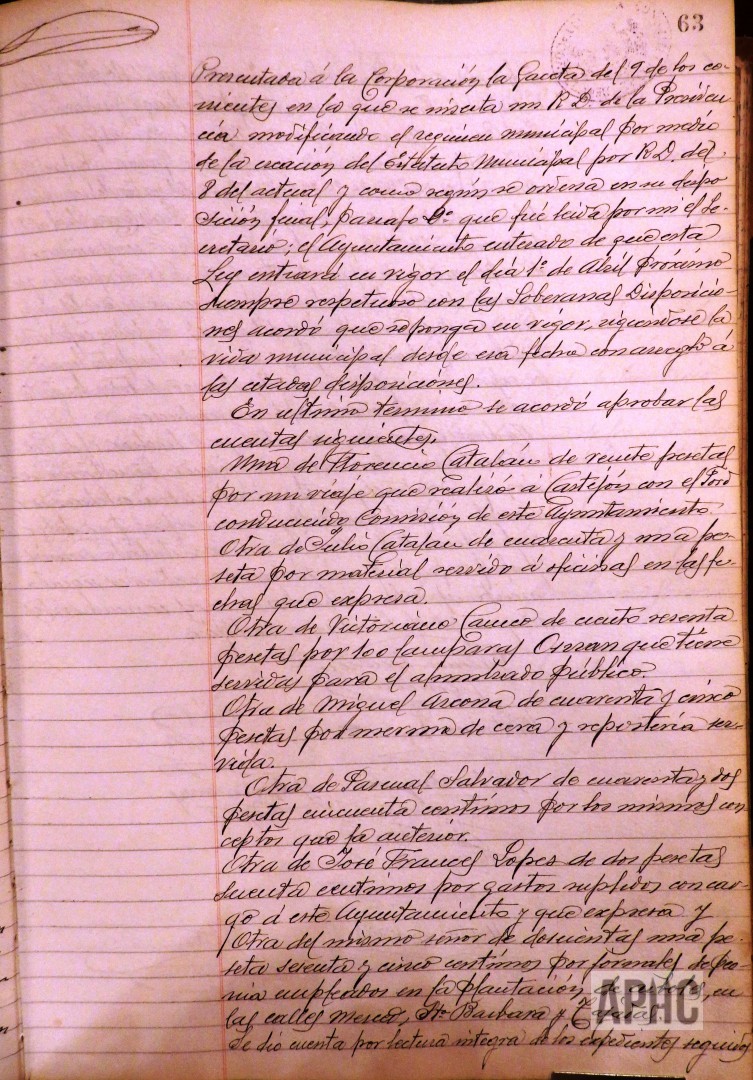 63
Presentada á la Corporación la Gaceta del 9 de los co-
rrientes en la que se inserta un R.D. de la Presiden
cia modificando el regimen municipal por medio
de la creación del Estatuto Municipal por R.D. del
8 del actual y como según se ordena en su dispo
sición final, parrafo que fué leida por mi el Se-
cretario; el Ayuntamiento enterado de que esta
Ley entrará en vigor el día 1º de Abril próximo
siempre respetuoso con las Soberanas Disposicio-
nes acordó que se ponga en vigor, rigiendose la
vida municipal desde esa fecha con arreglo á
las citadas disposiciones.
En ultimo termino se acordó aprobar las
cuentas siguientes.
Una de Florencio Catalán de veinte pesetas
por un viaje que realizó á Castejón con el Ford
conduciendo Comisión de este Ayuntamiento.
Otra de Julio Catalan de cuarenta y una pe-
seta por material servido á oficinas en las fe-
chas que expresa.
Otra de Victoriano de ciento sesenta
pesetas por 100 lamparas Osram que tiene
servidas para el alumbrado público.
Otra de Miguel Arcona de cuarenta y cinco
pesetas por merma de cera y reposteria ser-
vida.
Otra de Pascual Salvador de cuarenta y dos
pesetas cincuenta centimos por los mismos con
ceptos que la anterior.
Otra de José Frances Lopez de dos pesetas
centimos por gastos suplidos con car-
go á este Ayuntamiento y que expresa y
Otra del mismo señor de doscientas una pe-
seta sesenta y cinco centimos por jornales de peo
nia empleados en la plantación de, en
las calles Merced, Stª Barbara y
Se dio cuenta por lectura integra de los expedientes seguidos
APHC